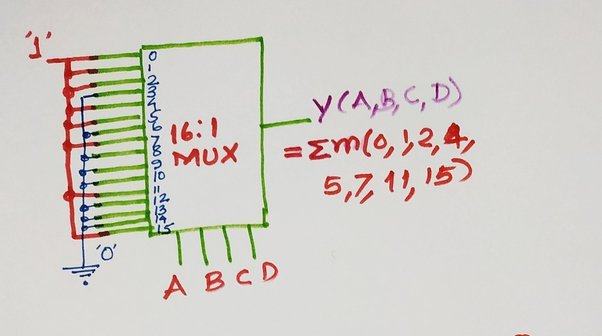 '1'
0
1
2
3
4
5
6
7
8
9
10
11
12
13
14
15
16:1
MUX
Y(A,B,C,D)
= Σm(0,1,2,4,
5,7,11,15)
'0'
A B C D